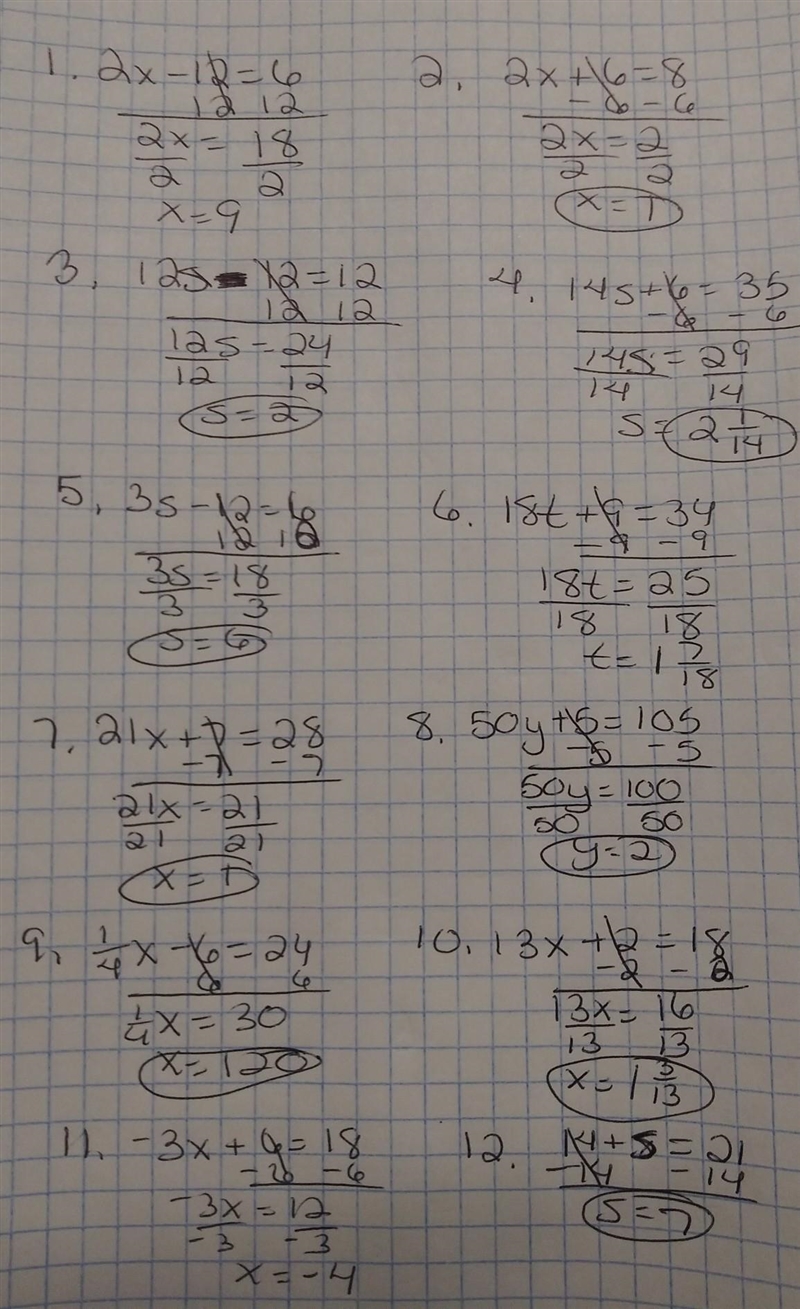 1. 2x - 12 = 6
12 12
2x = 18
2 2
x = 9
2. 2x + 6 = 8
- 6 - 6
2x = 2
2 2
x = 1
3. 12s - 12 = 12
12 12
12s = 24
12 12
s = 2
4. 14s + 6 = 35
- 6 - 6
14s = 29
14 14
s = 2 1/14
5. 3s - 12 = 6
12 12
3s = 18
3 3
s = 6
6. 18t + 9 = 34
- 9 - 9
18t = 25
18 18
t = 1 7/18
7. 21x + 7 = 28
- 7 - 7
21x = 21
21 21
x = 1
8. 50y + 5 = 105
- 5 - 5
50y = 100
50 50
y = 2
9. 1/4 x - 6 = 24
6 6
1/4 x = 30
x = 120
10. 13x + 2 = 18
- 2 - 2
13x = 16
13 13
x = 1 3/13
11. -3x + 6 = 18
- 6 - 6
-3x = 12
-3 -3
x = -4
12. 14 + s = 21
- 14 - 14
s = 7